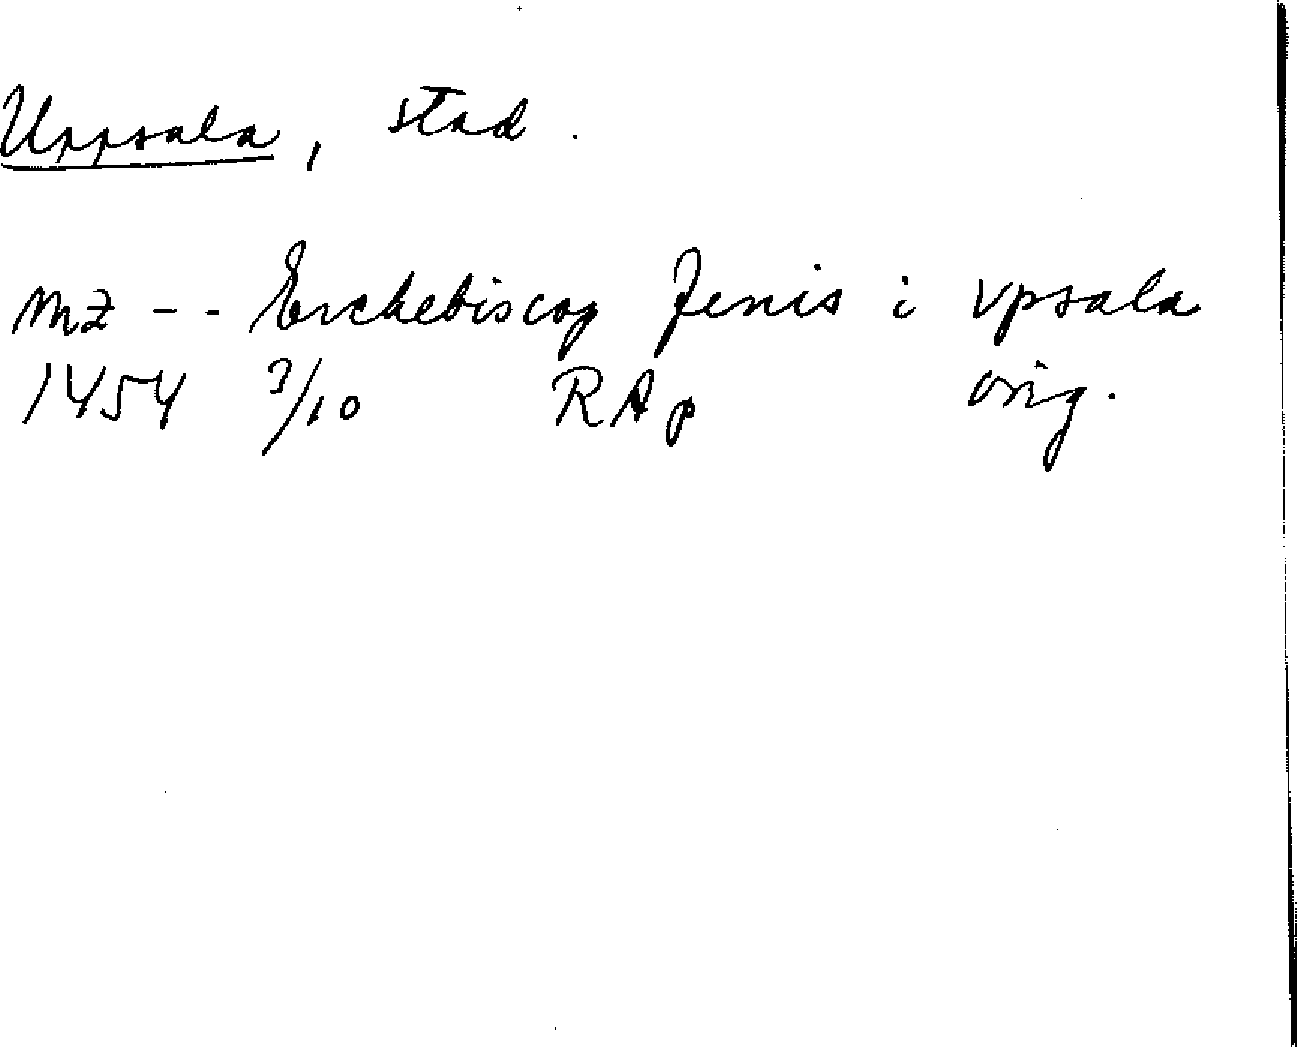 Uppsala, stad.
mz -- Erchebiscop Jenis i vpsala
1454 3/10 RAp orig.